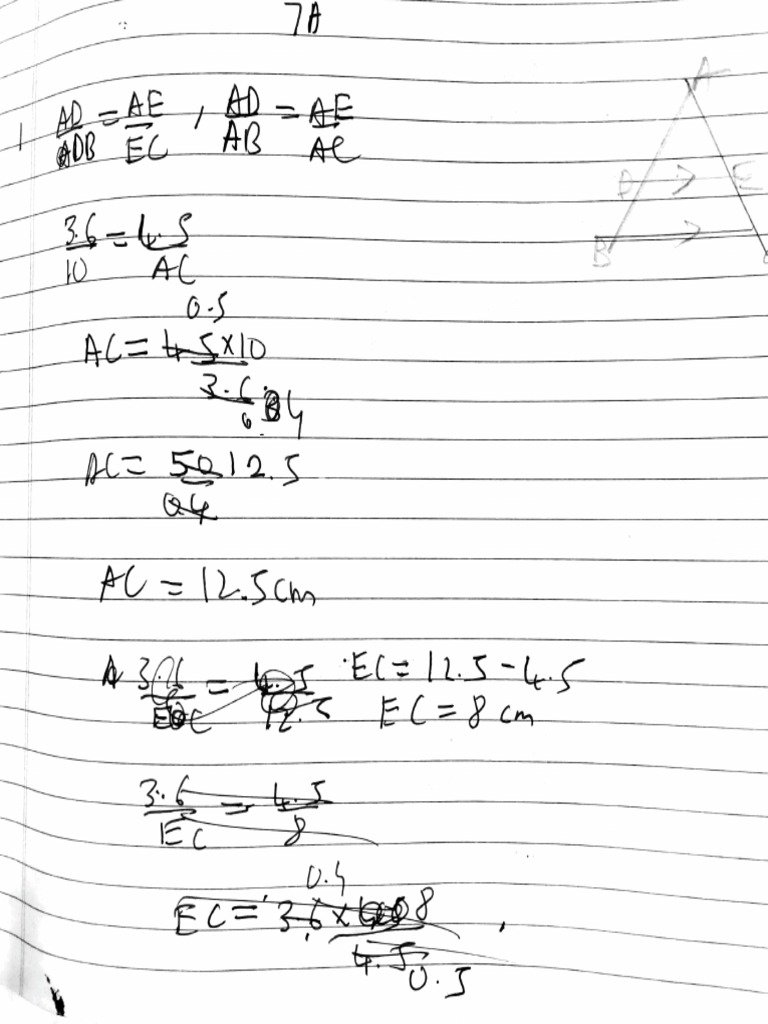 7A
1 AD/DB = AE/EC , AD/AB = AE/AC
A
D E
B
3.6/10 = 4.5/AC
0.5
AC = 4.5×10/3.6
0.4
AC = 50/0.4 12.5
AC = 12.5cm
3.6/EC = 4.5/12.5 EC = 12.5 - 4.5
EC = 8 cm
3.6/EC = 4.5/8
0.4
EC = 3.6 × 8/4.5
0.5